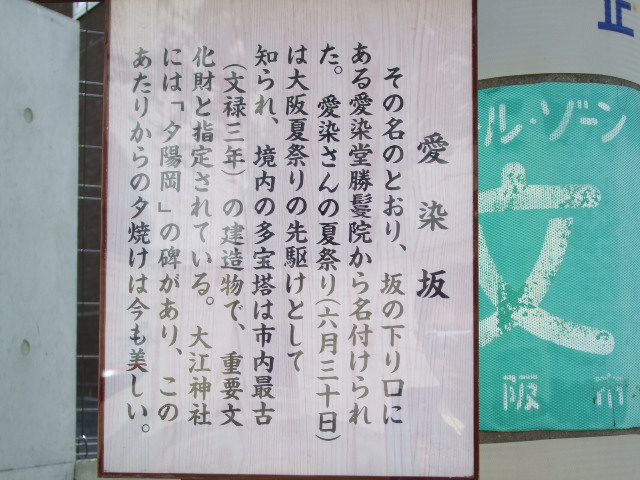 愛染坂
その名のとおり、坂の下り口に
ある愛染堂勝鬘院から名付けられ
た。愛染さんの夏祭り(六月三十日)
は大阪夏祭りの先駆けとして
知られ、境内の多宝塔は市内最古
(文禄三年)の建造物で、重要文
化財と指定されている。大江神社
には「夕陽岡」の碑があり、この
あたりからの夕焼けは今も美しい。
正
ル・ゾーン
文
阪市